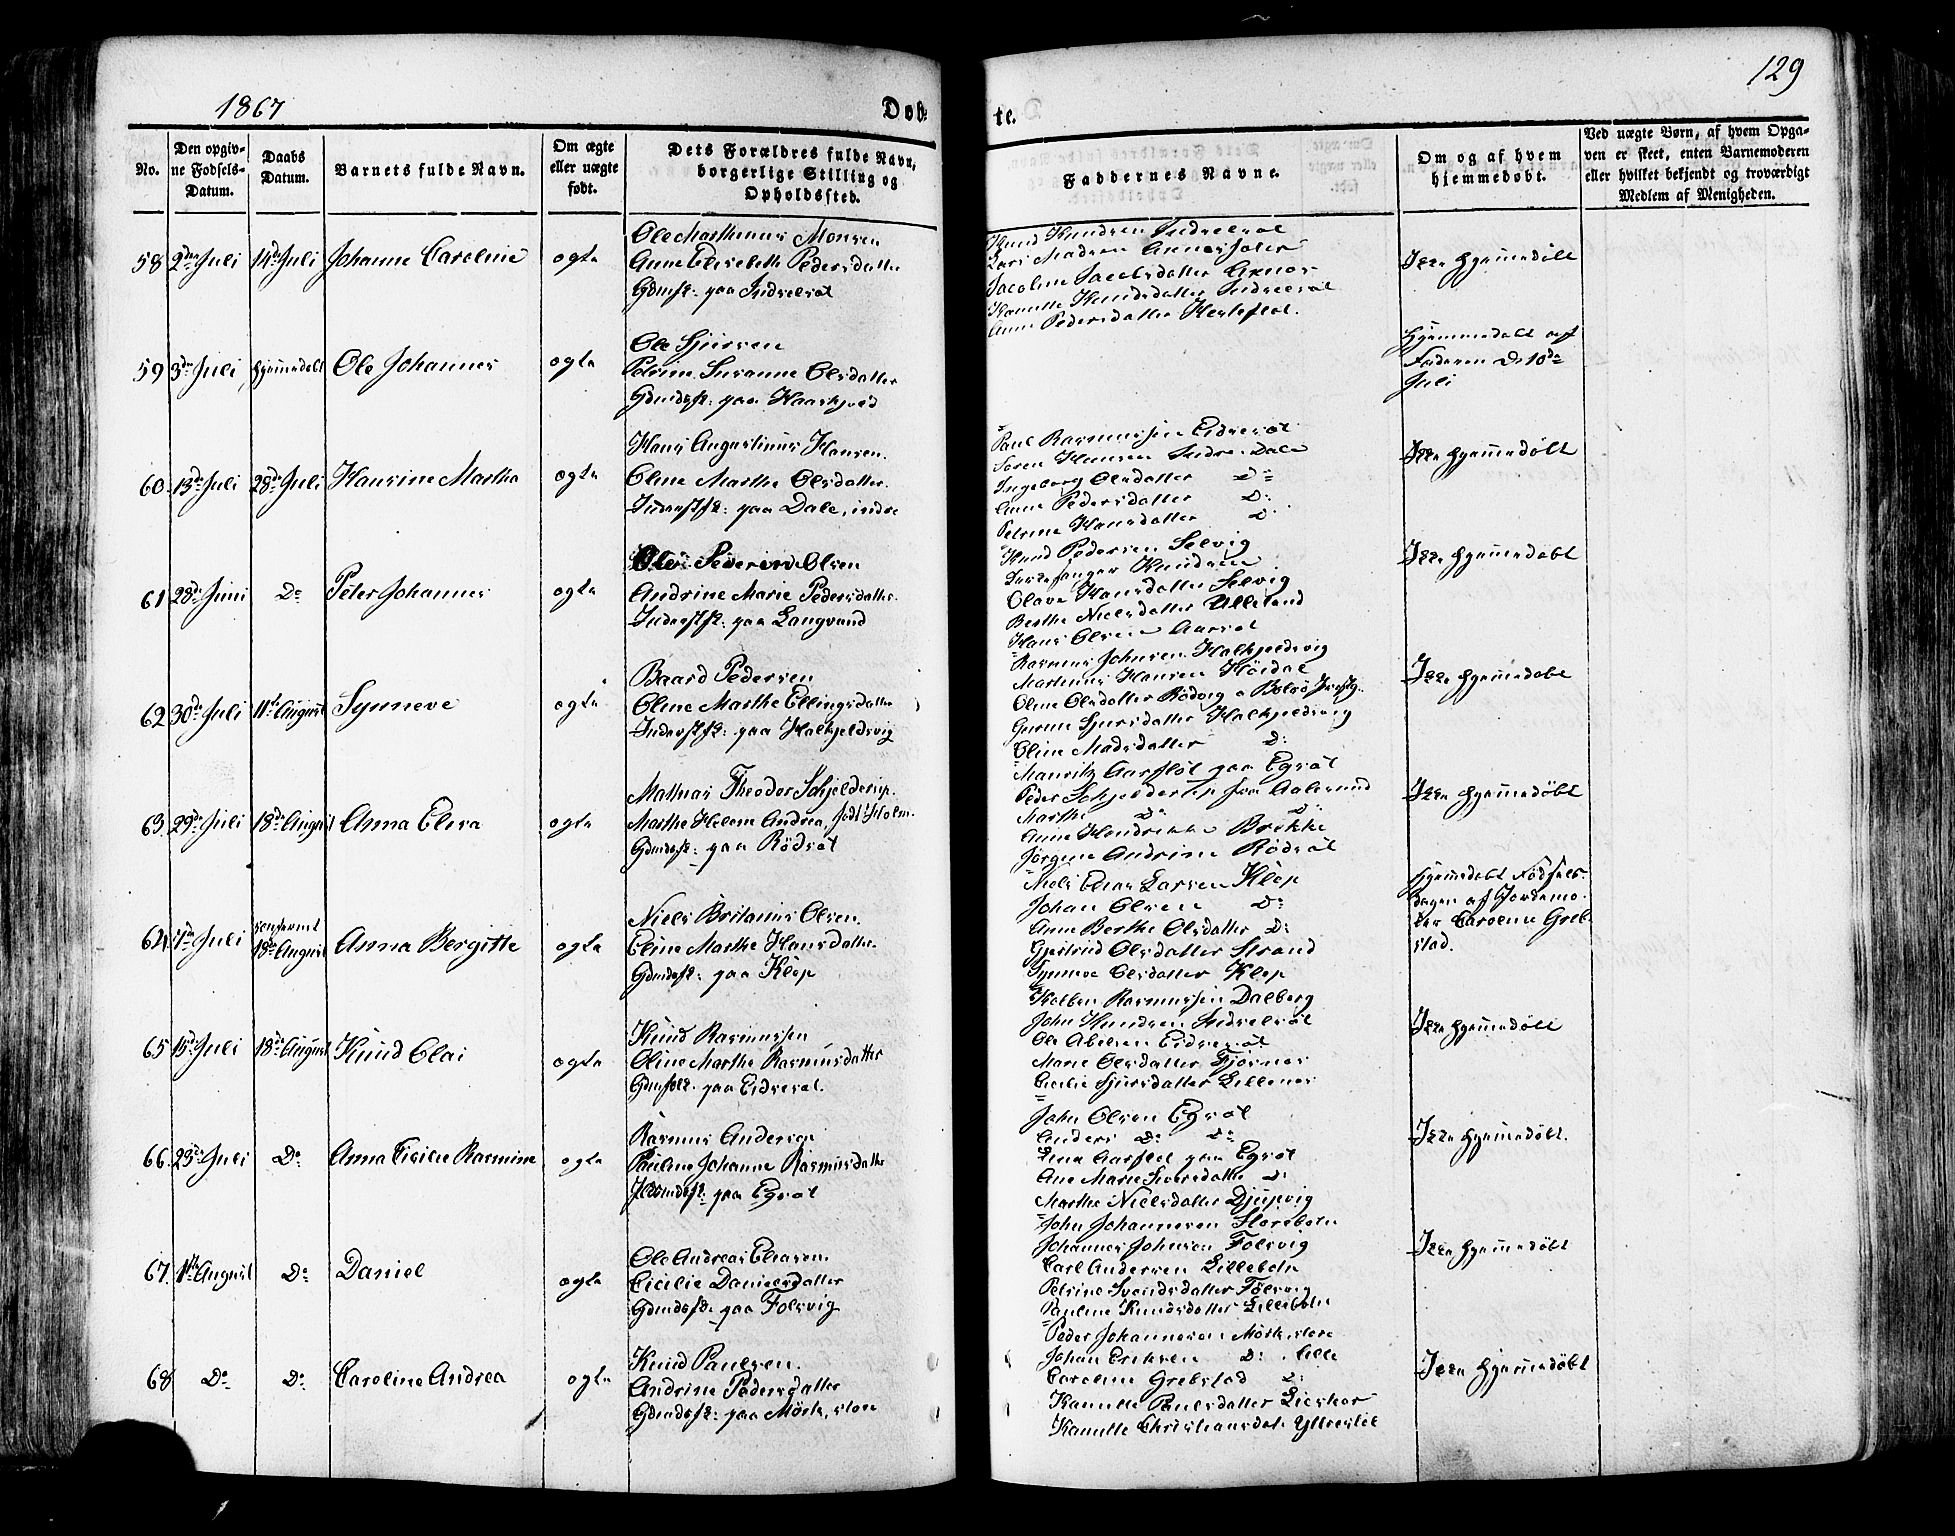 129
1867
Døb-
te.
No.
Den opgiv-
ne Fødsels-
Datum.
Daabs
Datum.
Barnets fulde Navn.
Om ægte
eller uægte
født.
Dets Forældres fulde Navn,
borgerlige Stilling og
Opholdssted.
Faddernes Navne.
Om og af hvem
hjemmedøbt.
Ved uægte Børn, af hvem Opga-
ven er skeet, enten Barnemoderen
eller hvilket bekjendt og troværdigt
Medlem af Menigheden.
58 2den Juli 14de Juli Johanne Caroline ægte
Ole Marthinus Monsen
Anne Elisebeth Pedersdatter
Gdmfk: paa Indreerøt
Knud Knudsen Indreerøt
Lars Madsen
Jacobine Jacobsdatter
Kanutte Knudsdatter Indreerøt
Anne Pedersdatter
Ikke hjemmedøbt
59 3de Juli hjemmedøbt Ole Johannes ægte
Ole Sjursen
Petrine Susanne Olsdatter
Gdmdsfk: paa
Hjemmedøbt af
Faderen D. 10de
Juli
60 13de Juli 28de Juli Hansine Martha ægte
Hans Augustinus Hansen.
Oline Marthe Olsdatter.
Inderstfk: paa Dale, indre
Paul Rasmussen
Søren Hansen Indre Dale
Ingeborg Olsdatter Do
Anne Pedersdatter D:
Petrine Hansdatter D
Ikke hjemmedøbt
61 28de Juni Do Peter Johannes ægte
Olsen
Andrine Marie Pedersdatter.
Inderstfk: paa Langvand
Knud Pedersen Selvig
Knudsen
Olave Hansdatter Selvig
Berthe Nielsdatter Ulleland
Hans Olsen
Ikke hjemmedøbt
62 30de Juli 11te August Synneve ægte
Baard Pedersen
Oline Marthe Ellingsdatter
Inderstfk: paa Halkjeldsvig
Rasmus Johnsen Halkjeldsvig
Marthinus Hansen Høidal
Oline Olsdatter Rødvig
Gurine Sjursdatter Halkjeldsvig
Oline Madsdatter D:
Ikke hjemmedøbt
63 29de Juli 18de August Anna Elera ægte
Mathias Theodor Schjelderup.
Marthe Helene Andrea, født Holm.
Gdmdsfk: paa Rødsøt
Mauritz Aarfløt paa Egsøt
Peder Schjelderup fra Aalesund
Marthe Do D:
Anne Hendrikke Brekke
Jørgine Andrine Rødsøt
Ikke hjemmedøbt
64 7de Juli 18de August Anna Bergitte ægte
Niels Britanus Olsen.
Eline Marthe Hansdatter.
Gdmdsfk: paa Klep
Niels Elias Larsen Klep
Johan Olsen D:
Anne Berthe Olsdatter D:
Gjertrud Olsdatter Strand
Synneve Olsdatter Klep
Hjemmedøbt Fødsels-
dagen af Jordemo-
der Caroline Greb-
stad.
65 15de Juli 18de August Knud Olai ægte
Knud Rasmussen
Oline Marthe Rasmusdatter
Gdmfolk: paa Eidreerøt.
Rasmussen Dalberg
John Knudsen Indreerøt
Ole Abelsen Eidreerøt
Marie Olsdatter
Cecilie Sjursdatter
Ikke hjemmedøbt
66 23de Juli Do Anna Cicilie Rasmine ægte
Rasmus Andersen
Pauline Johanne Rasmusdatter
paa Egsøt
John Olsen Egsøt
Anders D: Do
Lina Aarfløt paa Egsøt
Ane Marie Siversdatter D:
Marthe Nielsdatter Djupvig
Ikke hjemmedøbt.
67. 1ste August Do Daniel ægte
Ole Andreas Eliasen.
Cicilie Danielsdatter
Gdmdsfk: paa Følsvig
John Johannesen Storeboln
Johannes Johnsen Følsvig
Carl Andersen Lilleboln
Petrine Svendsdatter Følsvig
Pauline Knudsdatter Lilleboln
Ikke hjemmedøbt
68 Do Do Caroline Andrea ægte
Knud Paulsen.
Andrine Pedersdatter
Gdmdsfk: paa Mørk, store
Peder Johannesen Mørk, store
Johan Eriksen D: lille
Caroline Grebstad D:
Kanutte Paulsdatter
Kanutte Christiansdat:
Ikke hjemmedøbt